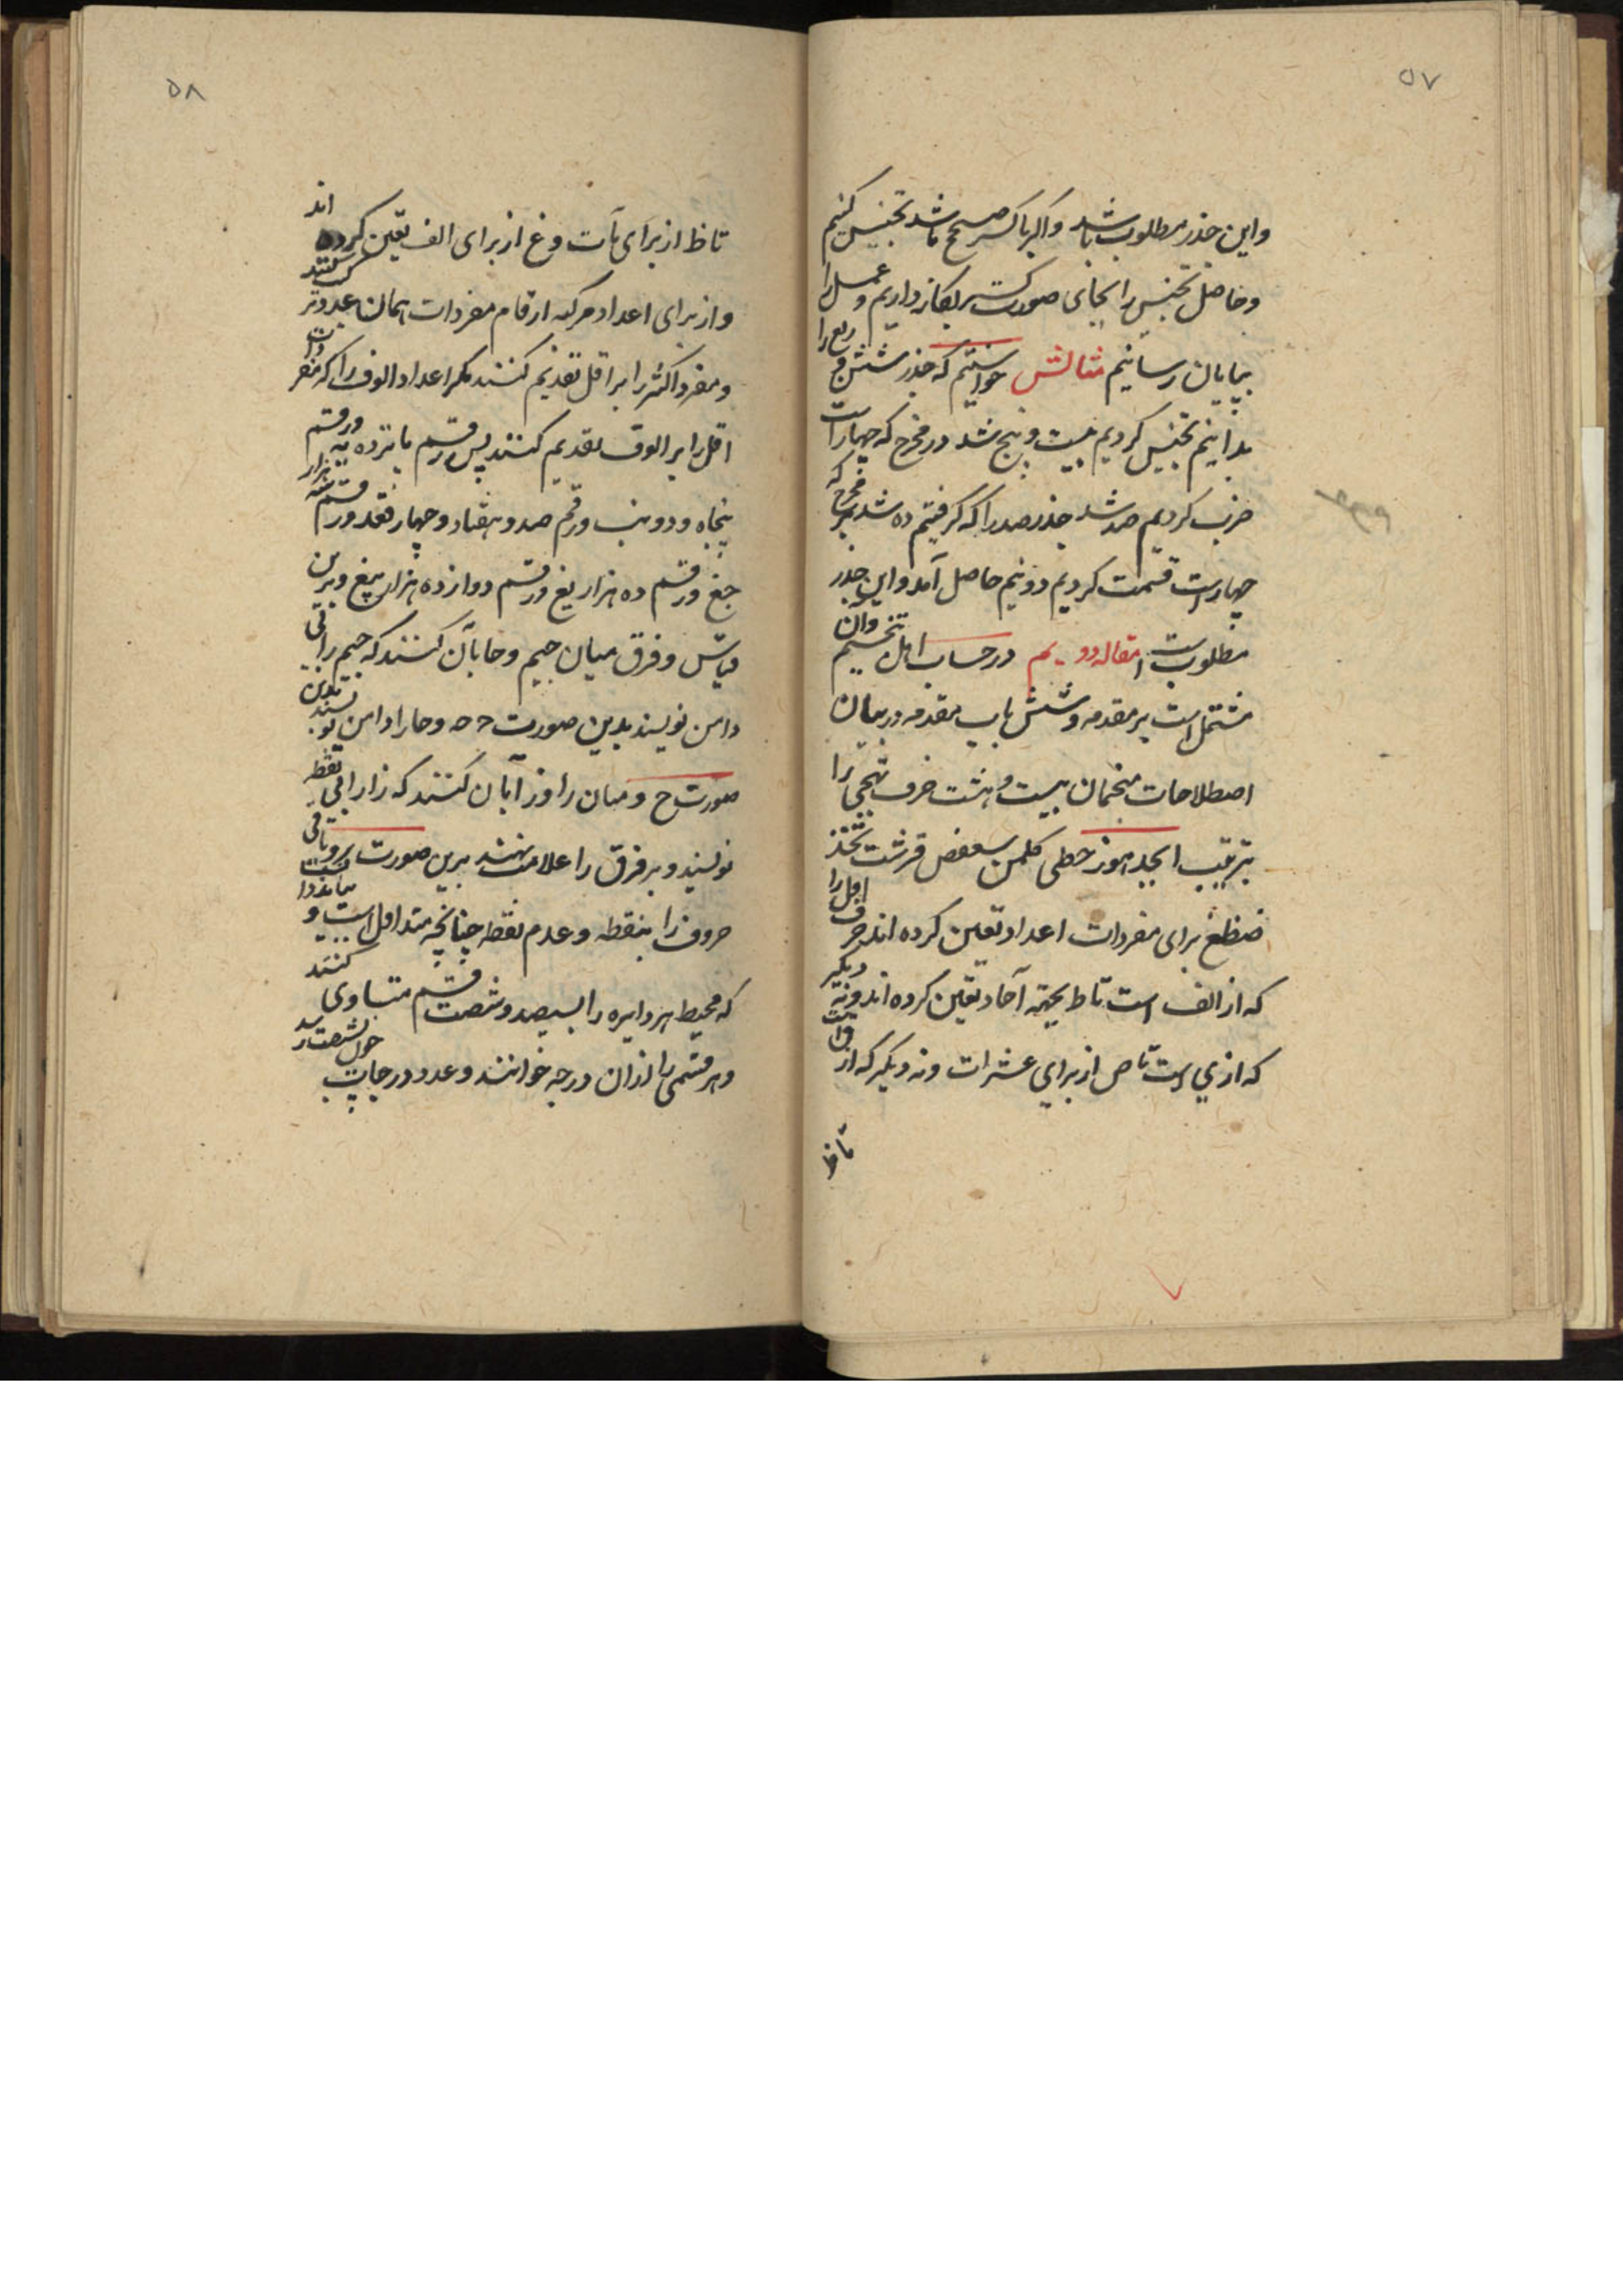 ۵۷
واین جذر مطلوب باشد واکر باکسر صحیح باشد تجنیس کنیم
وحاصل تجنیس را بجای صورت کسر بکار داریم وعمل را
بپایان رسانیم مثالش خواستیم که جذر شش و ربع را
بدانیم تجنیس کردیم بیست و پنج شد در مخرج که چهار است
ضرب کردیم صد شد جذر صد را که کرفتیم ده شد بر مخرج که
چهار است قسمت کردیم دو نیم حاصل آمد واین جذر
مطلوب است مقاله دویم در حساب اهل تنجیم وآن
مشتمل است بر مقدمه وشش باب مقدمه در بیان
اصطلاحات منجمان بیست وهشت حرف تهجی را
بترتیب ابجد هوز حطی کلمن سعفص قرشت ثخذ
ضظغ برای مفردات اعداد تعین کرده اند حرف اول را
که از الف است تا ط بجهة آحاد تعین کرده اند ونه دیکر
که از ی است تا ص از برای عشرات ونه دیکر که از ق است
تاظ
۵۸
تاظ از برای مآت وغ از برای الف تعین کرده اند
واز برای اعداد مرکبه ارقام مفردات همان عدد ترکیب کنند
ومفرد اکثر را بر اقل تقدیم کنند مکر اعداد الوف را که مفردات
اقل را بر الوف تقدیم کنند پس رقم پانزده یه ورقم
پنجاه ودو نب ورقم صد وهفتاد وچهار قعد ورقم سه هزار
جغ ورقم ده هزار یغ ورقم دوازده هزار یبغ وبرین
قیاس وفرق میان جیم وحا بآن کنند که جیم را بی
دامن نویسند بدین صورت حـ وحا را دامن نویسند بدین
صورت ح ومیان را وزا بآن کنند که زا را بی نقطه
نویسند وبر فرق را علامت نهند برین صورت وباقی
حروف را بنقطه وعدم نقطه چنانچه متداول است و
که محیط هر دایره را بسیصد وشصت قسم متساوی کنند
وهر قسمی را ازان درجه خوانند وعدد درجات چون بشصت رسد